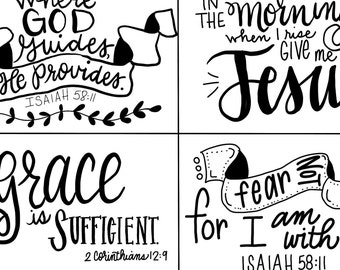 Where
GOD
Guides,
He Provides.
ISAIAH 58:11
IN
THE Morning
when I rise
GIVE me
Jesu
grace
is SUFFICIENT.
2 Corinthians 12:9
fear NOT
for I am
with
ISAIAH 58:11